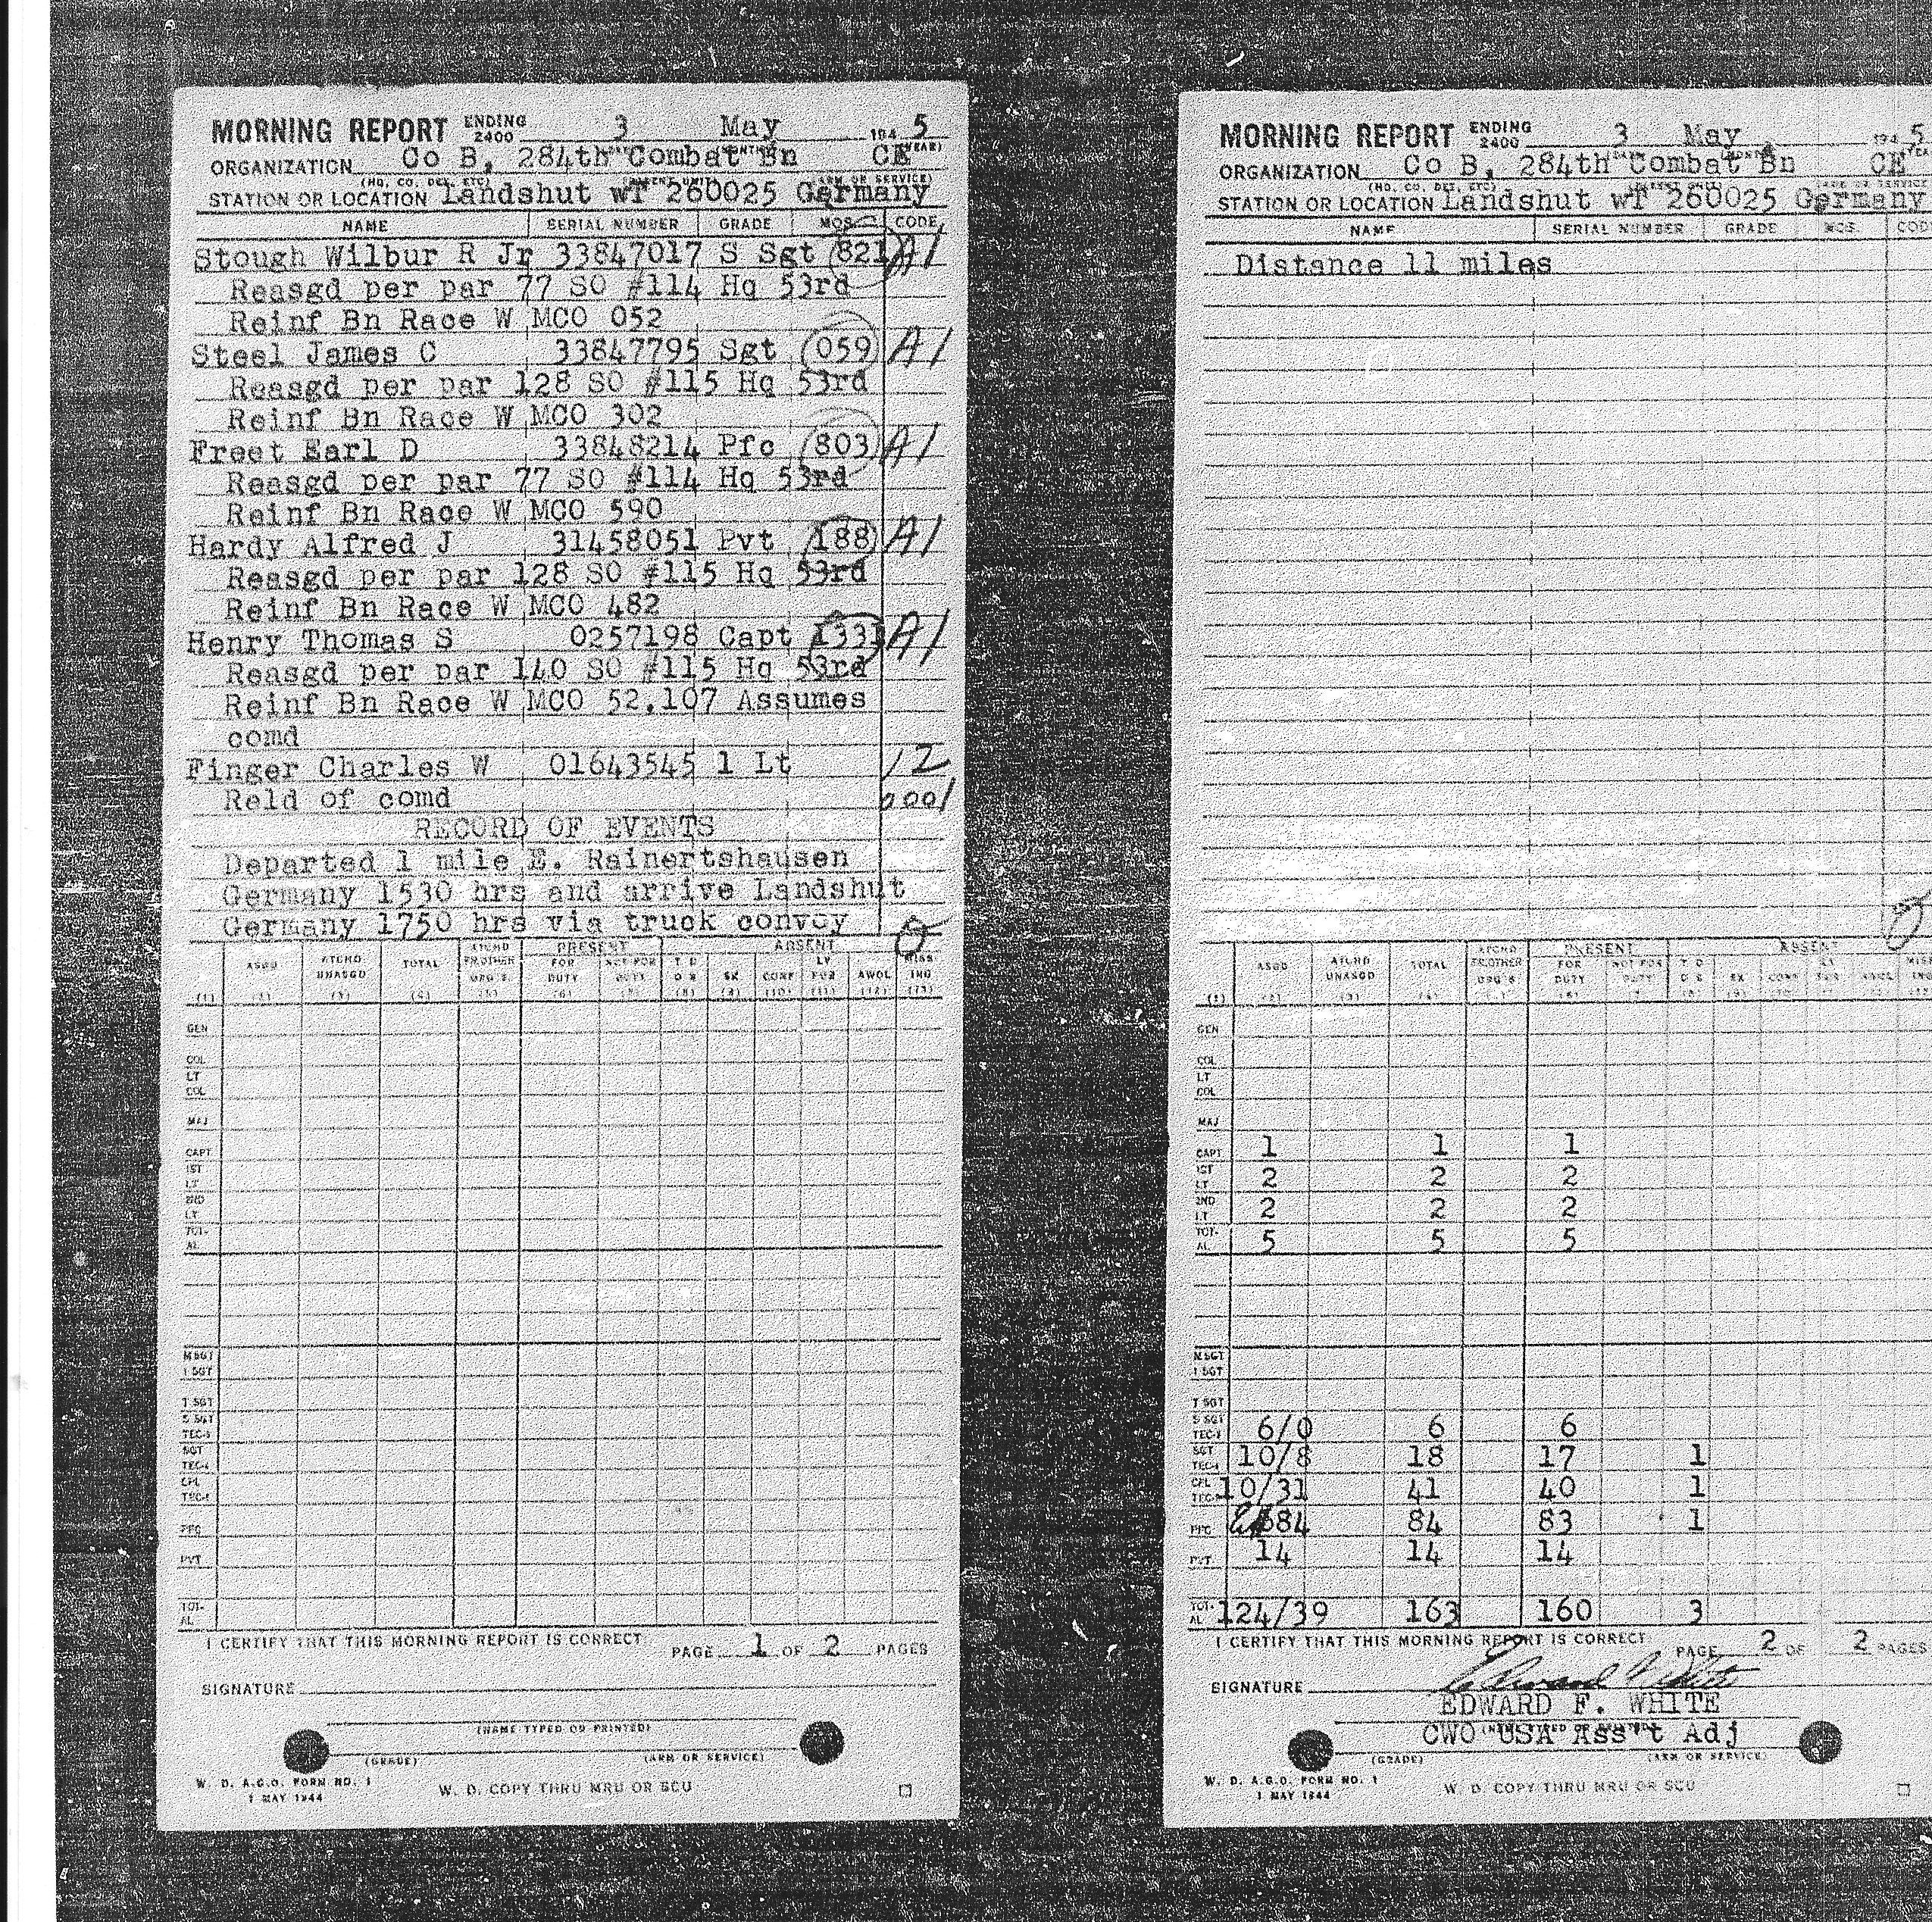 MORNING REPORT ENDING 2400 3 May 194 5
ORGANIZATION Co B, 284th Combat Bn CE
(HQ, CO, DET, ETC) (PARENT UNIT) (ARM OR SERVICE)
STATION OR LOCATION Landshut wT 260025 Germany
NAME SERIAL NUMBER GRADE MOS CODE
Stough Wilbur R Jr 33847017 S Sgt 821 A1
Reasgd per par 77 SO #114 Hq 53rd
Reinf Bn Race W MCO 052
Steel James C 33847795 Sgt 059 A1
Reasgd per par 128 SO #115 Hq 53rd
Reinf Bn Race W MCO 302
Freet Earl D 33848214 Pfc 803 A1
Reasgd per par 77 SO #114 Hq 53rd
Reinf Bn Race W MCO 590
Hardy Alfred J 31458051 Pvt 188 A1
Reasgd per par 128 SO #115 Hq 53rd
Reinf Bn Race W MCO 482
Henry Thomas S 0257198 Capt 1331 A1
Reasgd per par 140 SO #115 Hq 53rd
Reinf Bn Race W MCO 52.107 Assumes
comd
Finger Charles W 01643545 1 Lt 12
Reld of comd 0001
RECORD OF EVENTS
Departed 1 mile E. Rainertshausen
Germany 1530 hrs and arrive Landshut
Germany 1750 hrs via truck convoy
PRESENT ABSENT
ASGD ATCHD UNASGD TOTAL ATCHD FR OTHER ORG'S FOR DUTY NOT FOR DUTY T D D S SK CONF LV FUR AWOL MISSING
(1) (2) (3) (4) (5) (6) (7) (8) (9) (10) (11) (12) (13)
GEN
COL
LT COL
MAJ
CAPT
1ST LT
2ND LT
TOTAL
M SGT
1 SGT
T SGT
S SGT
TEC-3
SGT
TEC-4
CPL
TEC-5
PFC
PVT
TOTAL
I CERTIFY THAT THIS MORNING REPORT IS CORRECT PAGE 1 OF 2 PAGES
SIGNATURE
(NAME TYPED OR PRINTED)
(GRADE) (ARM OR SERVICE)
W. D. A.G.O. FORM NO. 1
1 MAY 1944
W. D. COPY THRU MRU OR SCU
MORNING REPORT ENDING 2400 3 May 194 5
ORGANIZATION Co B, 284th Combat Bn CE
(HQ, CO, DET, ETC)
STATION OR LOCATION Landshut wT 260025 Germany
NAME SERIAL NUMBER GRADE MOS COD
Distance 11 miles
PRESENT ABSENT
ASGD ATCHD UNASGD TOTAL ATCHD FR OTHER ORG'S FOR DUTY NOT FOR DUTY T D D S SK CONF
(1) (2) (3) (4) (6)
GEN
COL
LT COL
MAJ
CAPT 1 1 1
1ST LT 2 2 2
2ND LT 2 2 2
TOTAL 5 5 5
M SGT
1 SGT
T SGT
S SGT TEC-3 6/0 6 6
SGT TEC-4 10/8 18 17 1
CPL TEC-5 10/31 41 40 1
PFC 84 84 83 1
PVT 14 14 14
TOTAL 124/39 163 160 3
I CERTIFY THAT THIS MORNING REPORT IS CORRECT PAGE 2 OF 2 PAGES
SIGNATURE Edward F White
EDWARD F. WHITE
CWO USA Ass't Adj
(GRADE) (ARM OR SERVICE)
W. D. A.G.O. FORM NO. 1
1 MAY 1944
W. D. COPY THRU MRU OR SCU